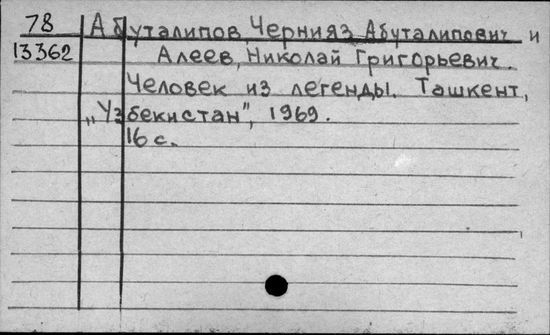 78 Абуталипов Чернияз Абуталипович и
13362 Алеев, Николай Григорьевич.
Человек из легенды. Ташкент,
„Узбекистан", 1969.
16 с.